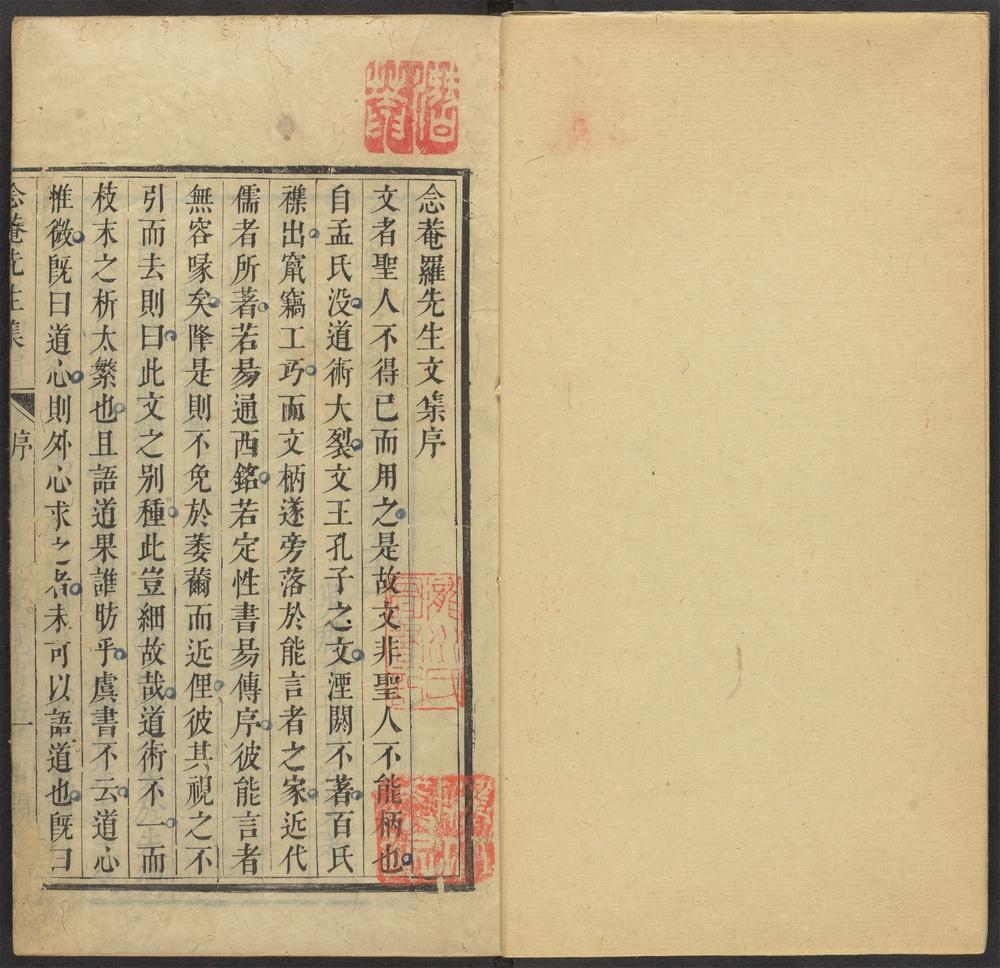 念菴羅先生文集序
文者聖人不得已而用之是故文非聖人不能柄也
自孟氏没道術大裂文王孔子之文湮閼不著百氏
襍出竄竊工巧而文柄遂旁落於能言者之家近代
儒者所著若易通西銘若定性書易傳序彼能言者
無容喙矣降是則不免於萎薾而近俚彼其視之不
引而去則曰此文之别種此豈細故哉道術不一而
枝末之析太繁也且語道果誰昉乎虞書不云道心
惟微旣曰道心則外心求之者未可以語道也旣曰
念菴先生集 序 一